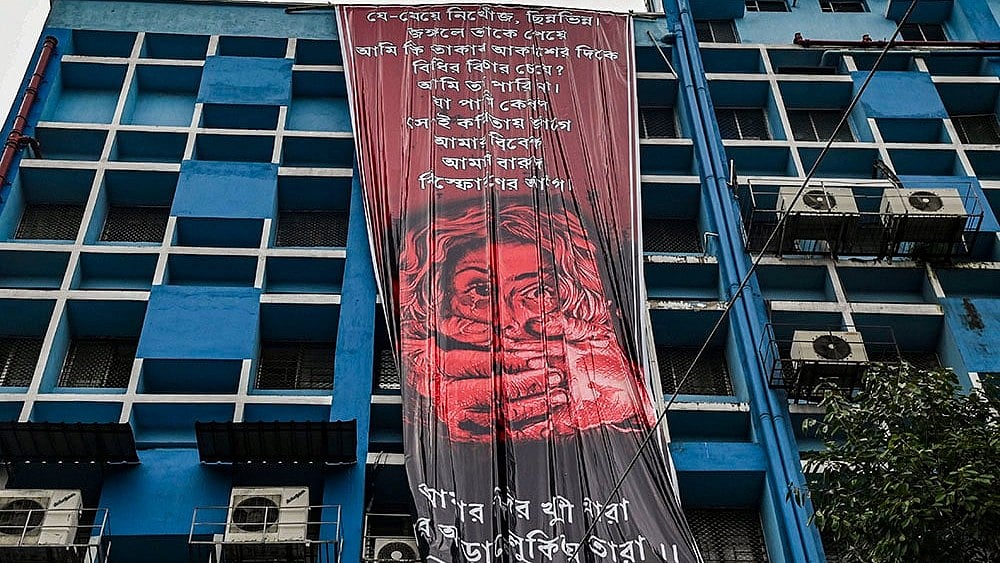 যে-মেয়ে নিখোঁজ, ছিন্নভিন্ন।
জঙ্গলে তাকে পেয়ে
আমি কি তাকাব আকাশের দিকে
বিধির বিচার চেয়ে?
আমি তা পারি না।
যা পারি কেবল
সে ই কবিতায় জাগে
আমার বিবেক
আমার বারুদ
বিস্ফোরণের আগে।
আমার খুনী যারা
তারা ।।